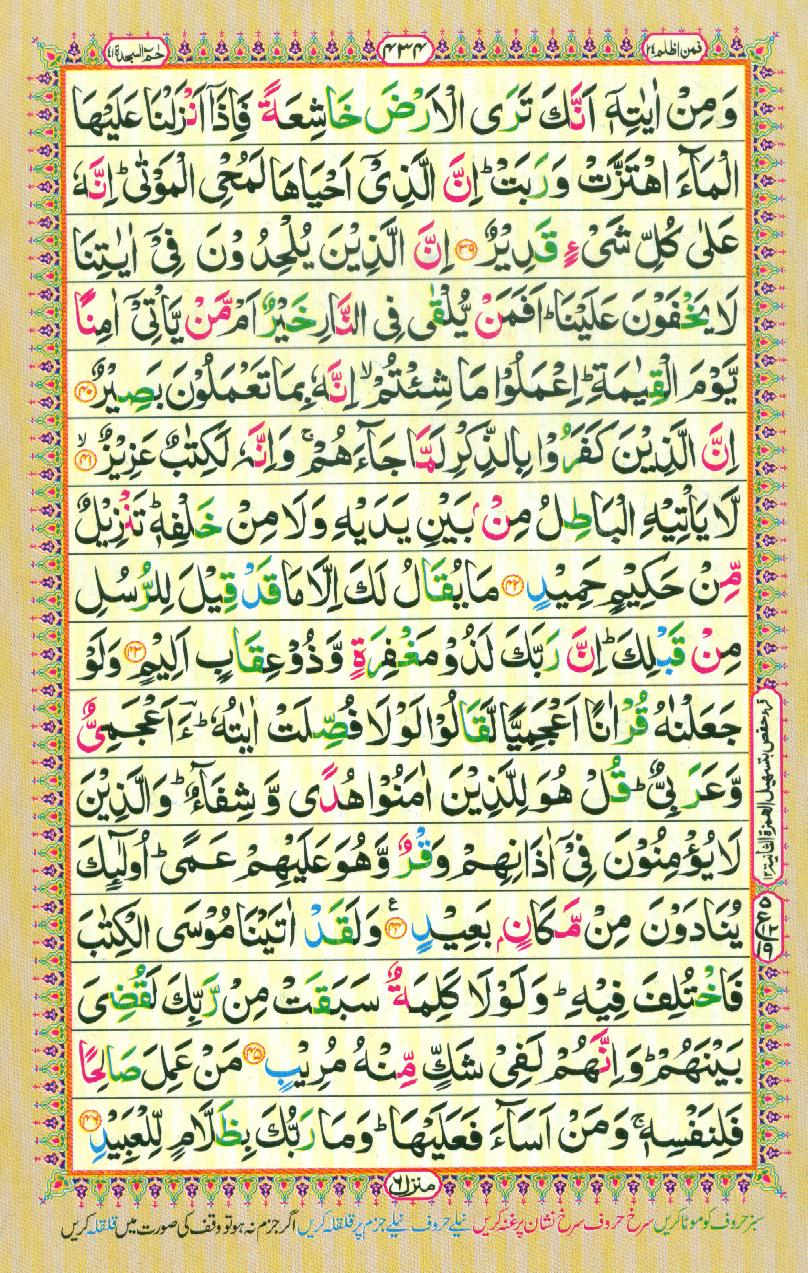 فمن اظلم ۲۴
۴۳۴
حٰمٓ السجدة ۴۱
وَمِنْ اٰيٰتِهٖۤ اَنَّكَ تَرَى الْاَرْضَ خَاشِعَةً فَاِذَاۤ اَنْزَلْنَا عَلَيْهَا
الْمَآءَ اهْتَزَّتْ وَرَبَتْ ؕ اِنَّ الَّذِيْۤ اَحْيَاهَا لَمُحْيِ الْمَوْتٰى ؕ اِنَّهٗ
عَلٰى كُلِّ شَيْءٍ قَدِيْرٌ ۝۳۹ اِنَّ الَّذِيْنَ يُلْحِدُوْنَ فِيْۤ اٰيٰتِنَا
لَا يَخْفَوْنَ عَلَيْنَا ؕ اَفَمَنْ يُّلْقٰى فِي النَّارِ خَيْرٌ اَمْ مَّنْ يَّاْتِيْۤ اٰمِنًا
يَّوْمَ الْقِيٰمَةِ ؕ اِعْمَلُوْا مَا شِئْتُمْ ۙ اِنَّهٗ بِمَا تَعْمَلُوْنَ بَصِيْرٌ ۝۴۰
اِنَّ الَّذِيْنَ كَفَرُوْا بِالذِّكْرِ لَمَّا جَآءَهُمْ ۚ وَاِنَّهٗ لَكِتٰبٌ عَزِيْزٌ ۙ۝۴۱
لَّا يَاْتِيْهِ الْبَاطِلُ مِنْۢ بَيْنِ يَدَيْهِ وَلَا مِنْ خَلْفِهٖ ؕ تَنْزِيْلٌ
مِّنْ حَكِيْمٍ حَمِيْدٍ ۝۴۲ مَا يُقَالُ لَكَ اِلَّا مَا قَدْ قِيْلَ لِلرُّسُلِ
مِنْ قَبْلِكَ ؕ اِنَّ رَبَّكَ لَذُوْ مَغْفِرَةٍ وَّذُوْ عِقَابٍ اَلِيْمٍ ۝۴۳ وَلَوْ
جَعَلْنٰهُ قُرْاٰنًا اَعْجَمِيًّا لَّقَالُوْا لَوْلَا فُصِّلَتْ اٰيٰتُهٗ ؕ ءَاَعْجَمِيٌّ
وَّعَرَبِيٌّ ؕ قُلْ هُوَ لِلَّذِيْنَ اٰمَنُوْا هُدًى وَّشِفَآءٌ ؕ وَالَّذِيْنَ
لَا يُؤْمِنُوْنَ فِيْۤ اٰذَانِهِمْ وَقْرٌ وَّهُوَ عَلَيْهِمْ عَمًى ؕ اُولٰٓئِكَ
يُنَادَوْنَ مِنْ مَّكَانٍۭ بَعِيْدٍ ۝۴۴ ع وَلَقَدْ اٰتَيْنَا مُوْسَى الْكِتٰبَ
فَاخْتُلِفَ فِيْهِ ؕ وَلَوْلَا كَلِمَةٌ سَبَقَتْ مِنْ رَّبِّكَ لَقُضِيَ
بَيْنَهُمْ ؕ وَاِنَّهُمْ لَفِيْ شَكٍّ مِّنْهُ مُرِيْبٍ ۝۴۵ مَنْ عَمِلَ صَالِحًا
فَلِنَفْسِهٖ ۚ وَمَنْ اَسَآءَ فَعَلَيْهَا ؕ وَمَا رَبُّكَ بِظَلَّامٍ لِّلْعَبِيْدِ ۝۴۶
منزل ۶
سبز حروف کو موٹا کریں سرخ حروف سرخ نشان پر غنہ کریں نیلے حروف نیلے جزم پر قلقلہ کریں اگر جزم نہ ہو تو وقف کی صورت میں قلقلہ کریں